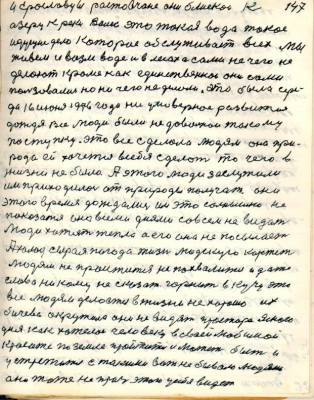 147
и ярославцы ростовчане они близкой к
озеру Крёк Ваше это такая вода такое
идущее дело которое обслуживает всех мы
живем и возле воде и в лесах а сами не чего не
делают кроме как единственное они сами
пользовались но ни чего не делали. Это была сре-
да 16 июня 1996 года ни умоверное развитие
дождя все люди были не довольны такому
поступку. Это все сделала людям она при-
рода ей хочется всебя сделать то чего в
жизни не было А этого люди заслужили
им приходилося от природы получать они
этого время дождались им это солнышко не
показатся оно всеми днями совсем не видать
Люди хотят тепла а его она не посылает
А холод сырая погода жизнь людскую коротит
Людям не проитится не похвалится и даже
слова никому не сказать горюют в кучу это
все людям делости в жизни не хорошо их
бичева окрутила они не видят простора ясного
дня как хотелося человеку в своей любимой
красоте по земле пройтится и может быть и
устретится с такими вот не бывало людьми
оно тоже не прав этого у себя видет